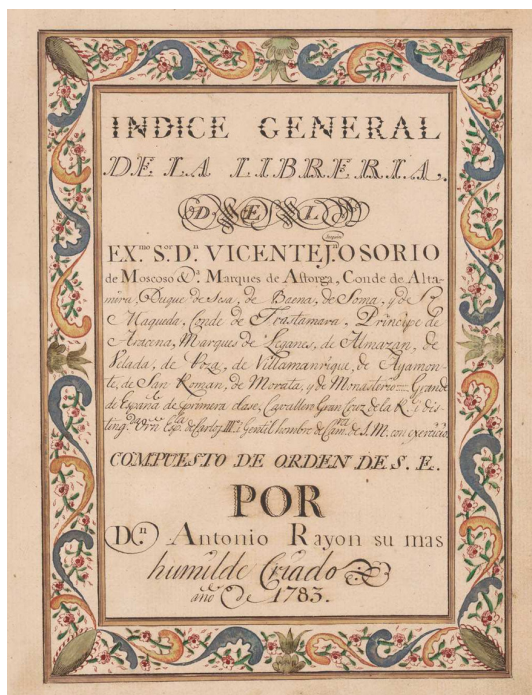 INDICE GENERAL
DE LA LIBRERIA,
DEL
EX.mo S.or D.n VICENTE J.n OSORIO
de Moscoso &.a Marques de Astorga, Conde de Alta-
mira, Duque de Sesa, de Baena, de Soma, y de
Maqueda, Conde de Trastamara, Principe de
Aracena, Marques de Leganes, de Almazan, de
Velada, de Poza, de Villamanrique, de Ayamon-
te, de San Roman, de Morata, y de Monasterio Grande
de España de primera clase, Cavallero Gran Cruz de la R.l y dis-
ting.da Orn Esp.la de Carlos III.o Gentil hombre de Cam.ra de S.M. con exercicio,
COMPUESTO DE ORDEN DE S. E.
POR
D.n Antonio Rayon su mas
humilde Criado
año De 1783.